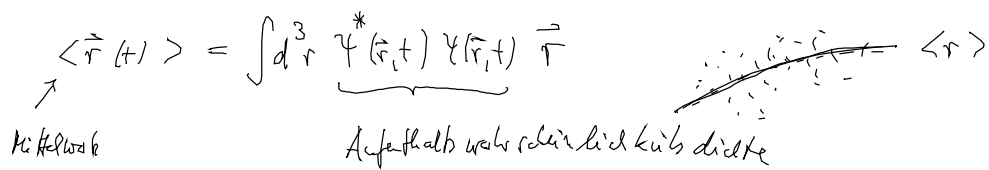 ⟨r⃗(t)⟩ = ∫d³r Ψ*(r⃗,t) Ψ(r⃗,t) r⃗ ⟨r⟩
Mittelwert Aufenthaltswahrscheinlichkeitsdichte